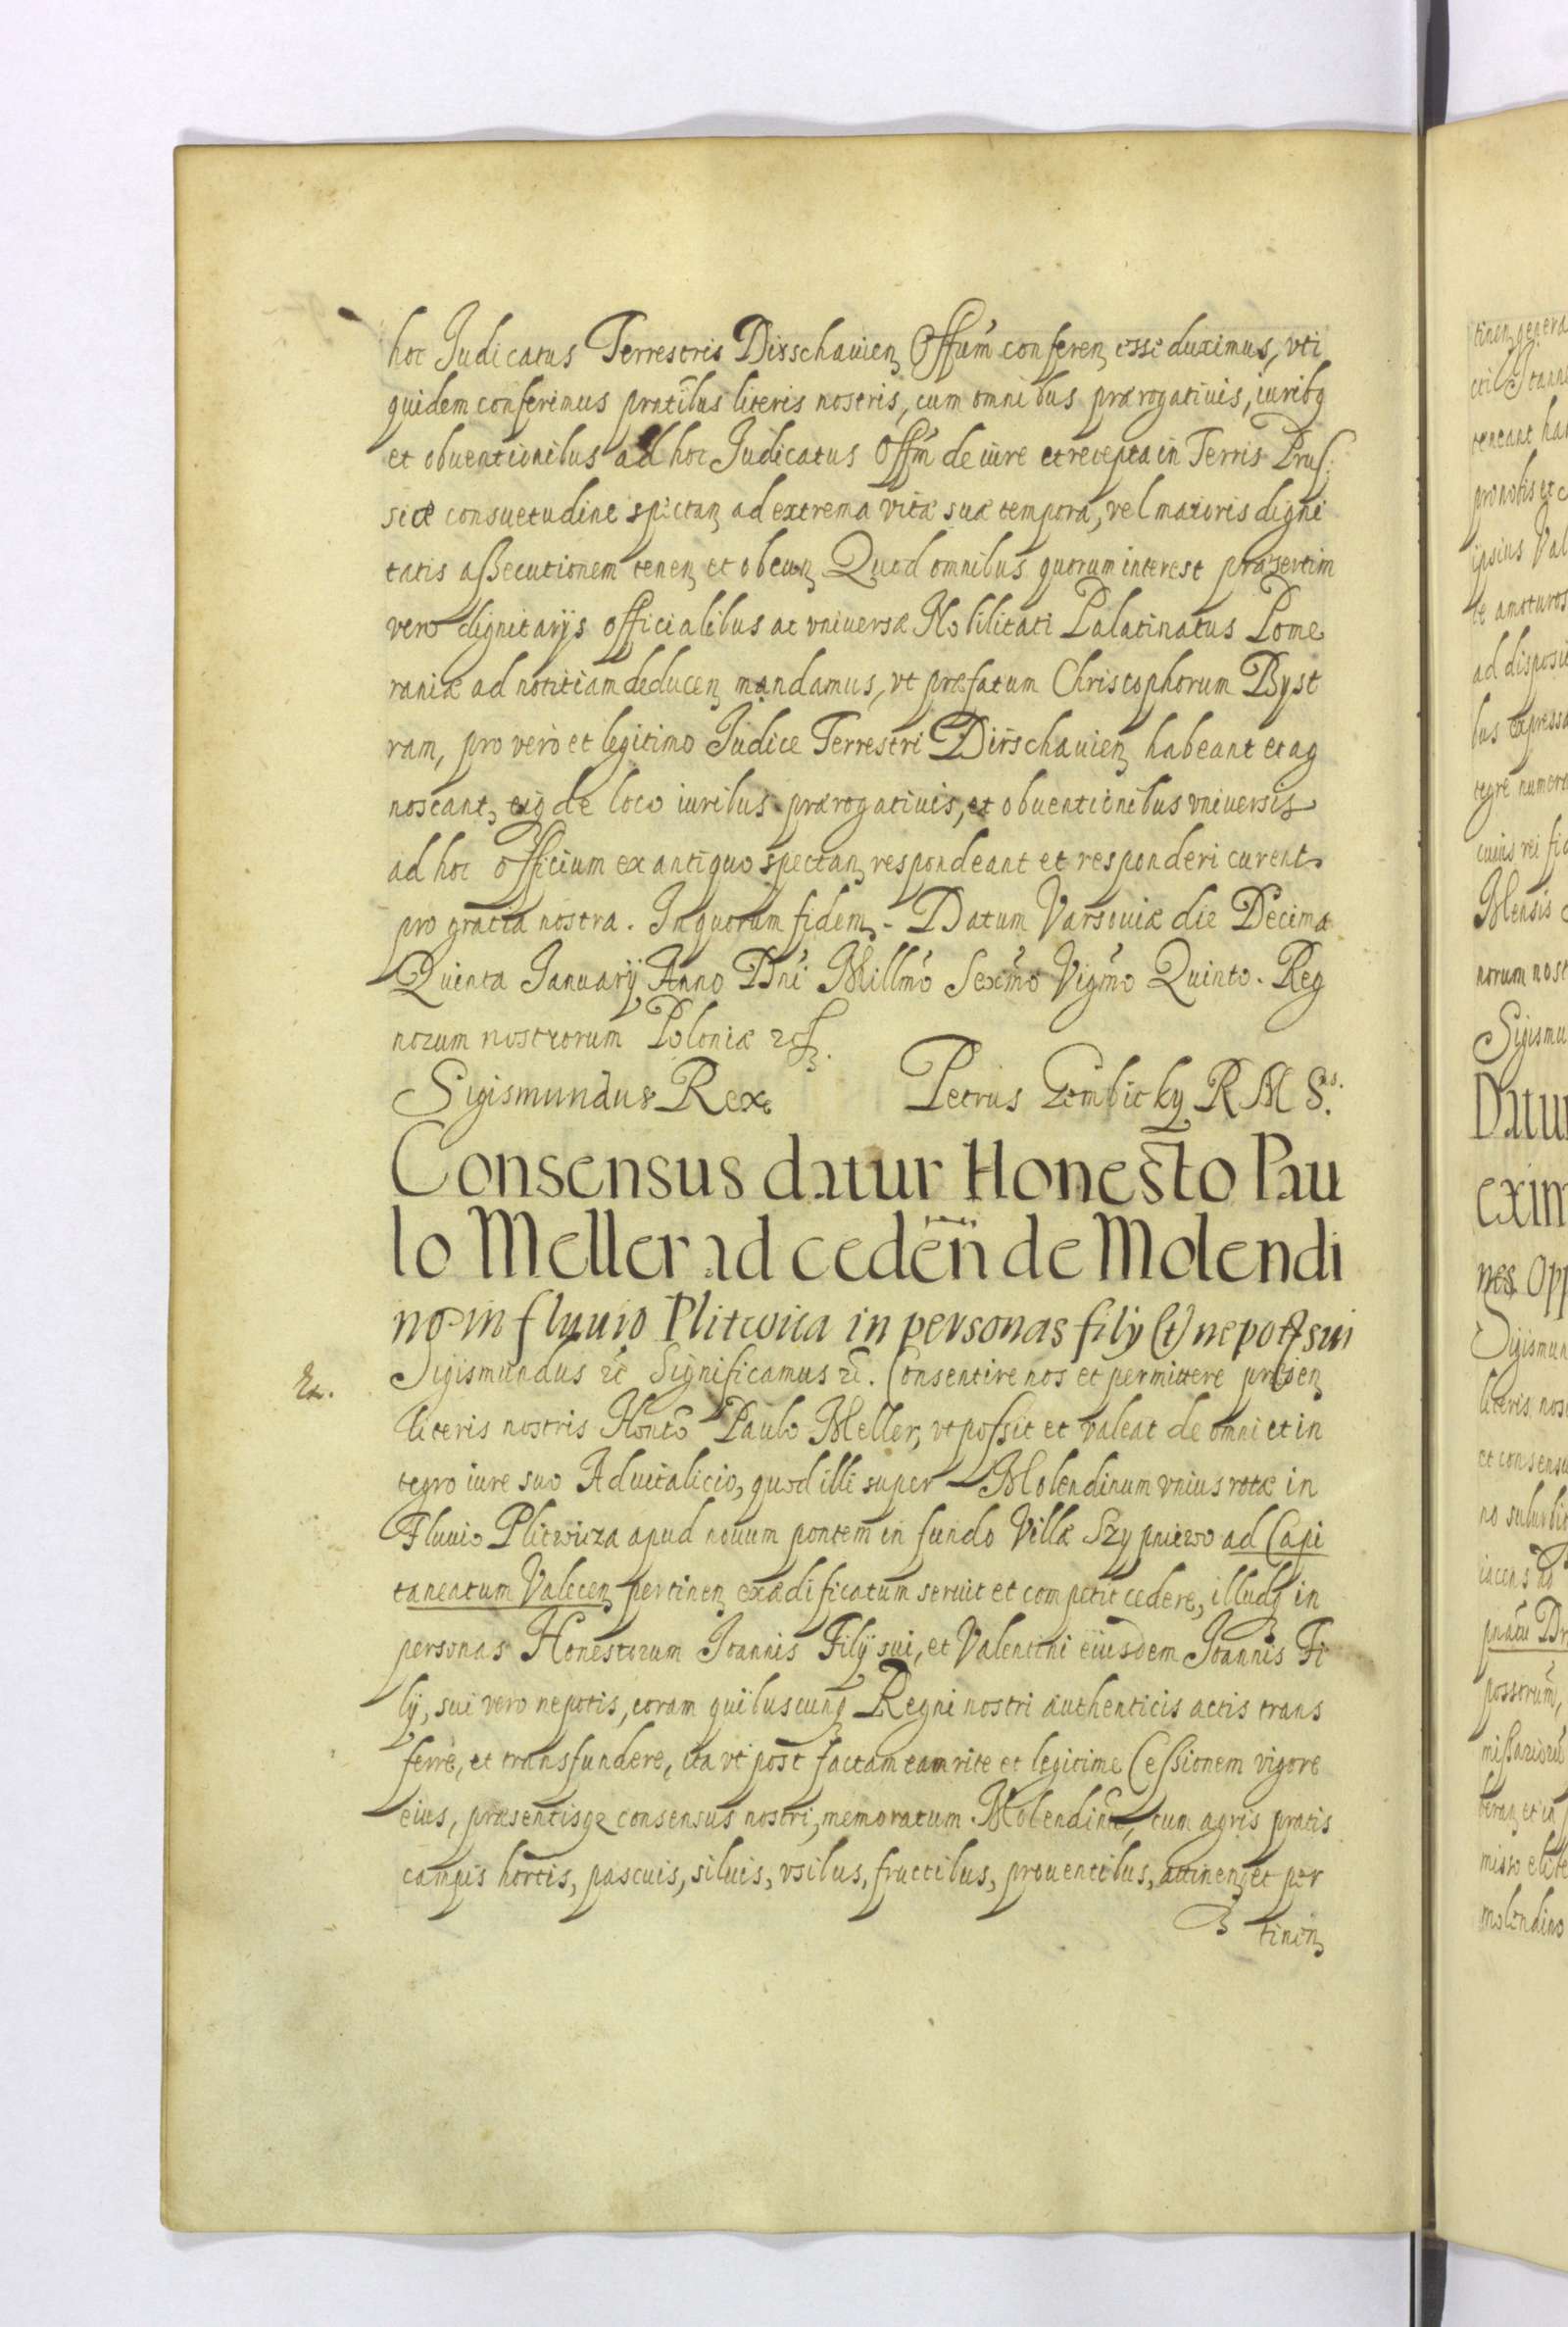 hoc Judicatus Terrestris Dirschauien Offium conferen esse duximus, vti
quidem conferimus pratibus literis nostris, cum omnibus prærogatiuis, iuribq
et obuentionibus ad hoc Judicatus Offm de iure et recepta in Terris Prus:
siæ consuetudine spectan ad extrema vitæ suæ tempora, vel maioris digni
tatis assecutionem tenen et obeun Quod omnibus quorum interest præsertim
vero dignitarijs officialibus ac vniuersæ Nobilitati Palatinatus Pome
raniæ ad notitiam deducen mandamus, vt præfatum Christophorum Byst
ram, pro vero et legitimo Judice Terrestri Dirschauien habeant et ag
noscant, eiq de loco iuribus prærogatiuis, et obuentionibus vniuersis
ad hoc officium ex antiquo spectan respondeant et responderi curent
pro gratia nostra. In quorum fidem. - Datum Varsouiæ die Decima
Quinta Januarij Anno Dni Millmo Sexmo Vigmo Quinto. Reg
norum nostrorum Poloniæ etc.
Sigismundus Rex Petrus Gembicky R M S.
Consensus datur Honesto Pau
lo Meller ad ceden de Molendi
no in fluuio Plitwica in personas filij (et) nepotis sui
Ex.
Sigismundus etc Significamus etc. Consentire nos et permittere præsen
literis nostris Honto Paulo Meller, vt possit et valeat de omni et in
tegro iure suo Aduitalicio, quod illi super Molendinum vnius rotæ in
Fluuio Plitwicza apud nouum pontem in fundo Villæ Szypniewo ad Capi
taneatum Valcen pertinen exædificatum seruit et competit cedere, illudq in
personas Honestorum Joannis Filij sui, et Valentini eiusdem Joannis Fi
lij, sui vero nepotis, coram quibuscunq Regni nostri authenticis actis trans
ferre, et transfundere, ita vt post factam eam rite et legitime Cessionem vigore
eius, præsentisqe consensus nostri, memoratum Molendinu, cum agris pratis
campis hortis, pascuis, siluis, vsibus, fructibus, prouentibus, attinen et per
tinen